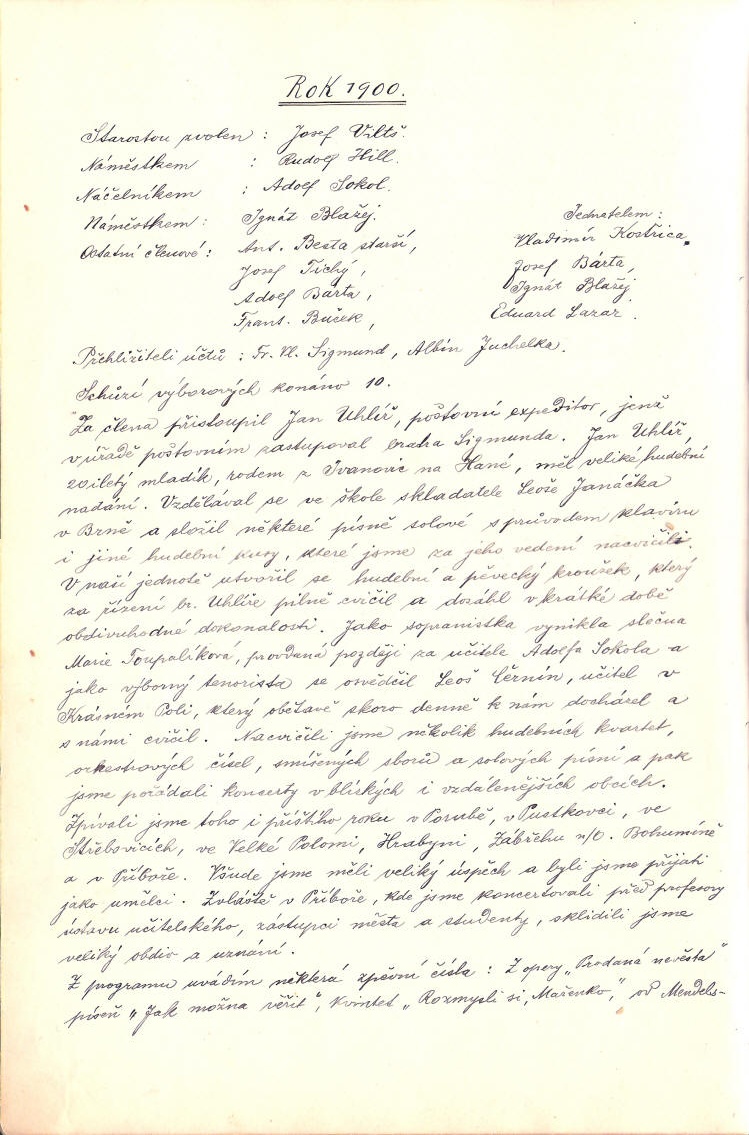 Rok 1900.
Starostou zvolen : Josef Viltš.
Náměstkem : Rudolf Hill.
Náčelníkem : Adolf Sokol.
Náměstkem : Ignát Blažej. Jednatelem :
Ostatní členové : Ant. Besta starší, Vladimír Kostřica.
Josef Tichý, Josef Bárta,
Adolf Bárta, Ignát Blažej
Frant. Buček, Eduard Lazar.
Přehlížiteli účtů : Fr. Vl. Sigmund, Albín Juchelka.
Schůzí výborových konáno 10.
Za člena přistoupil Jan Uhlíř, poštovní expeditor, jenž
v úřadě poštovním zastupoval bratra Sigmunda. Jan Uhlíř,
20iletý mladík, rodem z Ivanovic na Hané, měl veliké hudební
nadání. Vzdělával se ve škole skladatele Leoše Janáčka
v Brně a složil některé písně solové s průvodem klavíru
i jiné hudební kusy, které jsme za jeho vedení nacvičili.
V naší jednotě utvořil se hudební a pěvecký kroužek, který
za řízení br. Uhlíře pilně cvičil a dosáhl v krátké době
obdivuhodné dokonalosti. Jako sopranistka vynikla slečna
Marie Toupalíkova, provdaná později za učitele Adolfa Sokola a
jako výborný tenorista se osvědčil Leoš Černín, učitel v
Krásném Poli, který obětavě skoro denně k nám docházel a
s námi cvičil. Nacvičili jsme několik hudebních kvartet,
orkestrových čísel, smíšených sborů a solových písní a pak
jsme pořádali koncerty v blízkých i vzdálenějších obcích.
Zpívali jsme toho i příštího roku v Porubě, v Pustkovci, ve
Střebovicích, ve Velké Polomi, Hrabyni, Zábřehu n/O. Bohumíně
a v Příboře. Všude jsme měli veliký úspěch a byli jsme přijati
jako umělci. Zvláště v Příboře, kde jsme koncertovali před profesory
ústavu učitelského, zástupci města a studenty, sklidili jsme
veliký obdiv a uznání.
Z programu uvádím některá zpěvní čísla : Z opery „Prodaná nevěsta"
píseň „Jak možna věřit", kvintet „Rozmysli si, Mařenko", od Mendels-